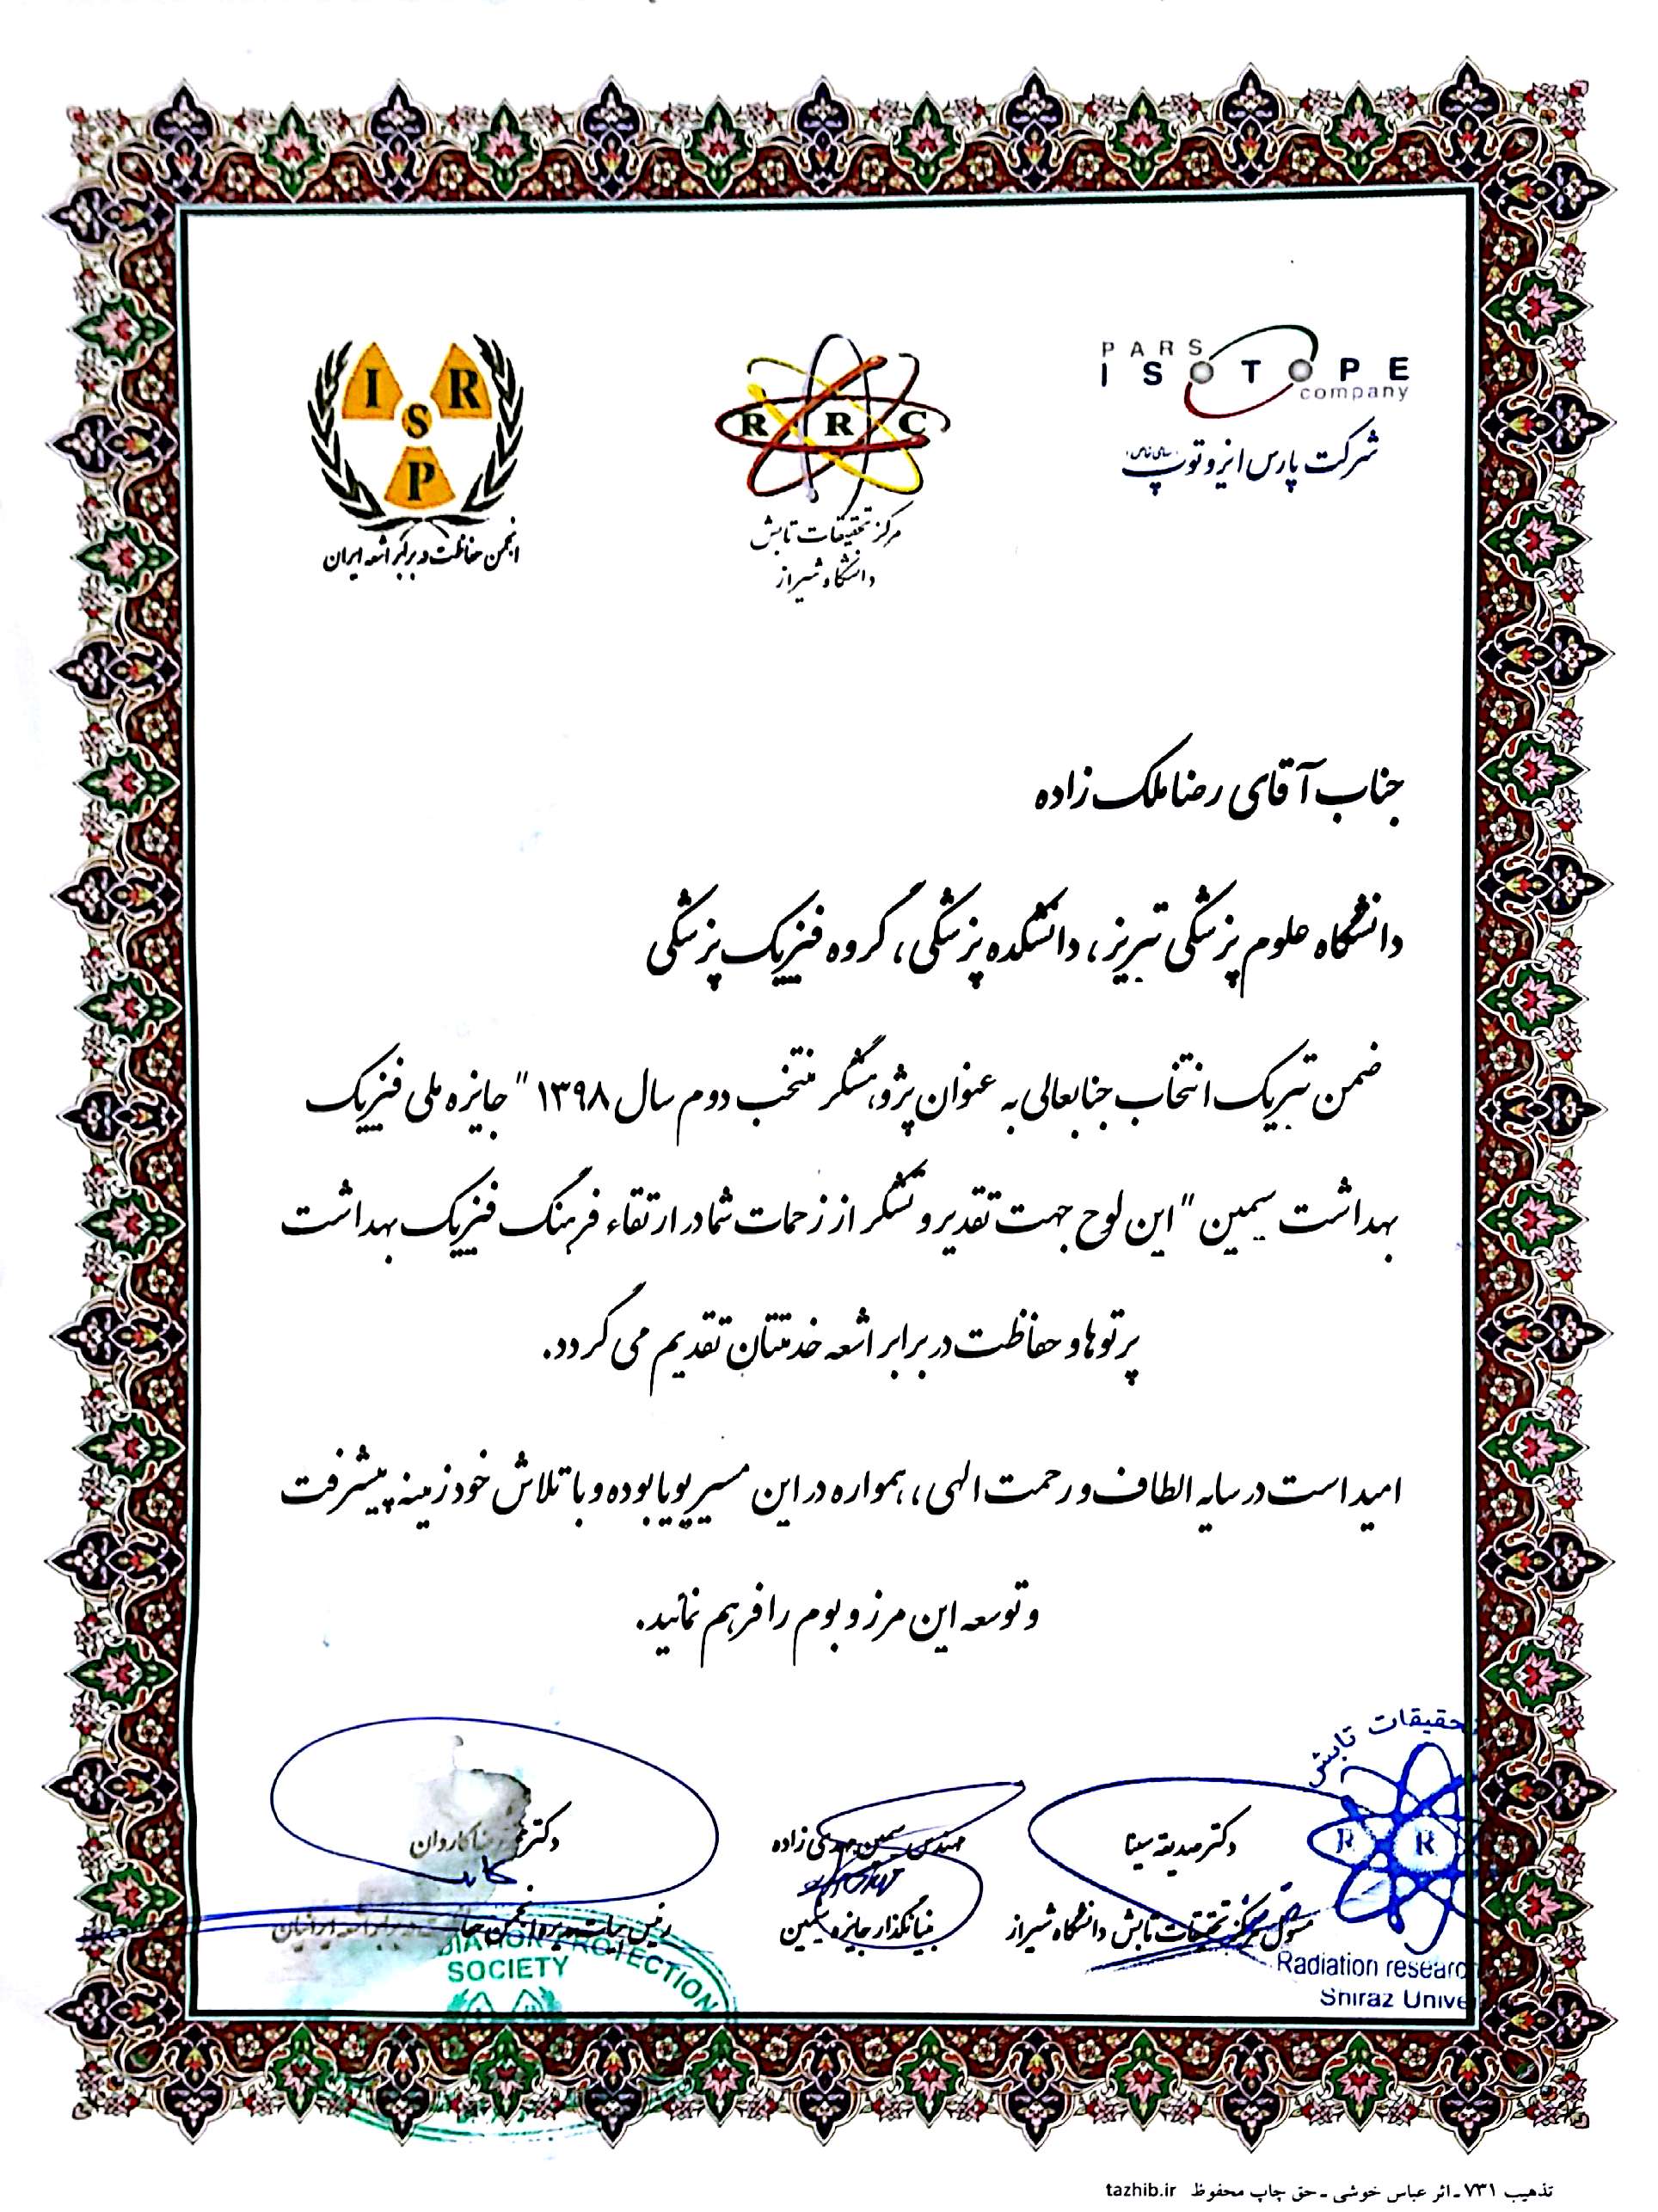 PARS
ISOTOPE
company
شرکت پارس ایزوتوپ
R R C
مرکز تحقیقات تابش
دانشگاه شیراز
I R
S
P
انجمن حفاظت در برابر اشعه ایران
جناب آقای رضا ملک زاده
دانشگاه علوم پزشکی تبریز، دانشکده پزشکی، گروه فیزیک پزشکی
ضمن تبریک انتخاب جنابعالی به عنوان پژوهشگر منتخب دوم سال ۱۳۹۸ "جایزه ملی فیزیک
بهداشت سیمین" این لوح جهت تقدیر و تشکر از زحمات شما در ارتقاء فرهنگ فیزیک بهداشت
پرتوها و حفاظت در برابر اشعه خدمتتان تقدیم می گردد.
امید است در سایه الطاف و رحمت الهی، همواره در این مسیر پویا بوده و با تلاش خود زمینه پیشرفت
و توسعه این مرز و بوم را فراهم نمائید.
تحقیقات تابش
R R
دکتر صدیقه سینا
مسئول مرکز تحقیقات تابش دانشگاه شیراز
Radiation research
Shiraz Unive
مهندس سیمین مهدی زاده
بنیانگذار جایزه سیمین
دکتر کاردان
رئیس هیات مدیره انجمن حفاظت در برابر اشعه ایرانیان
RADIATION PROTECTION
SOCIETY
تذهیب ۷۳۱ - اثر عباس خوشی - حق چاپ محفوظ tazhib.ir